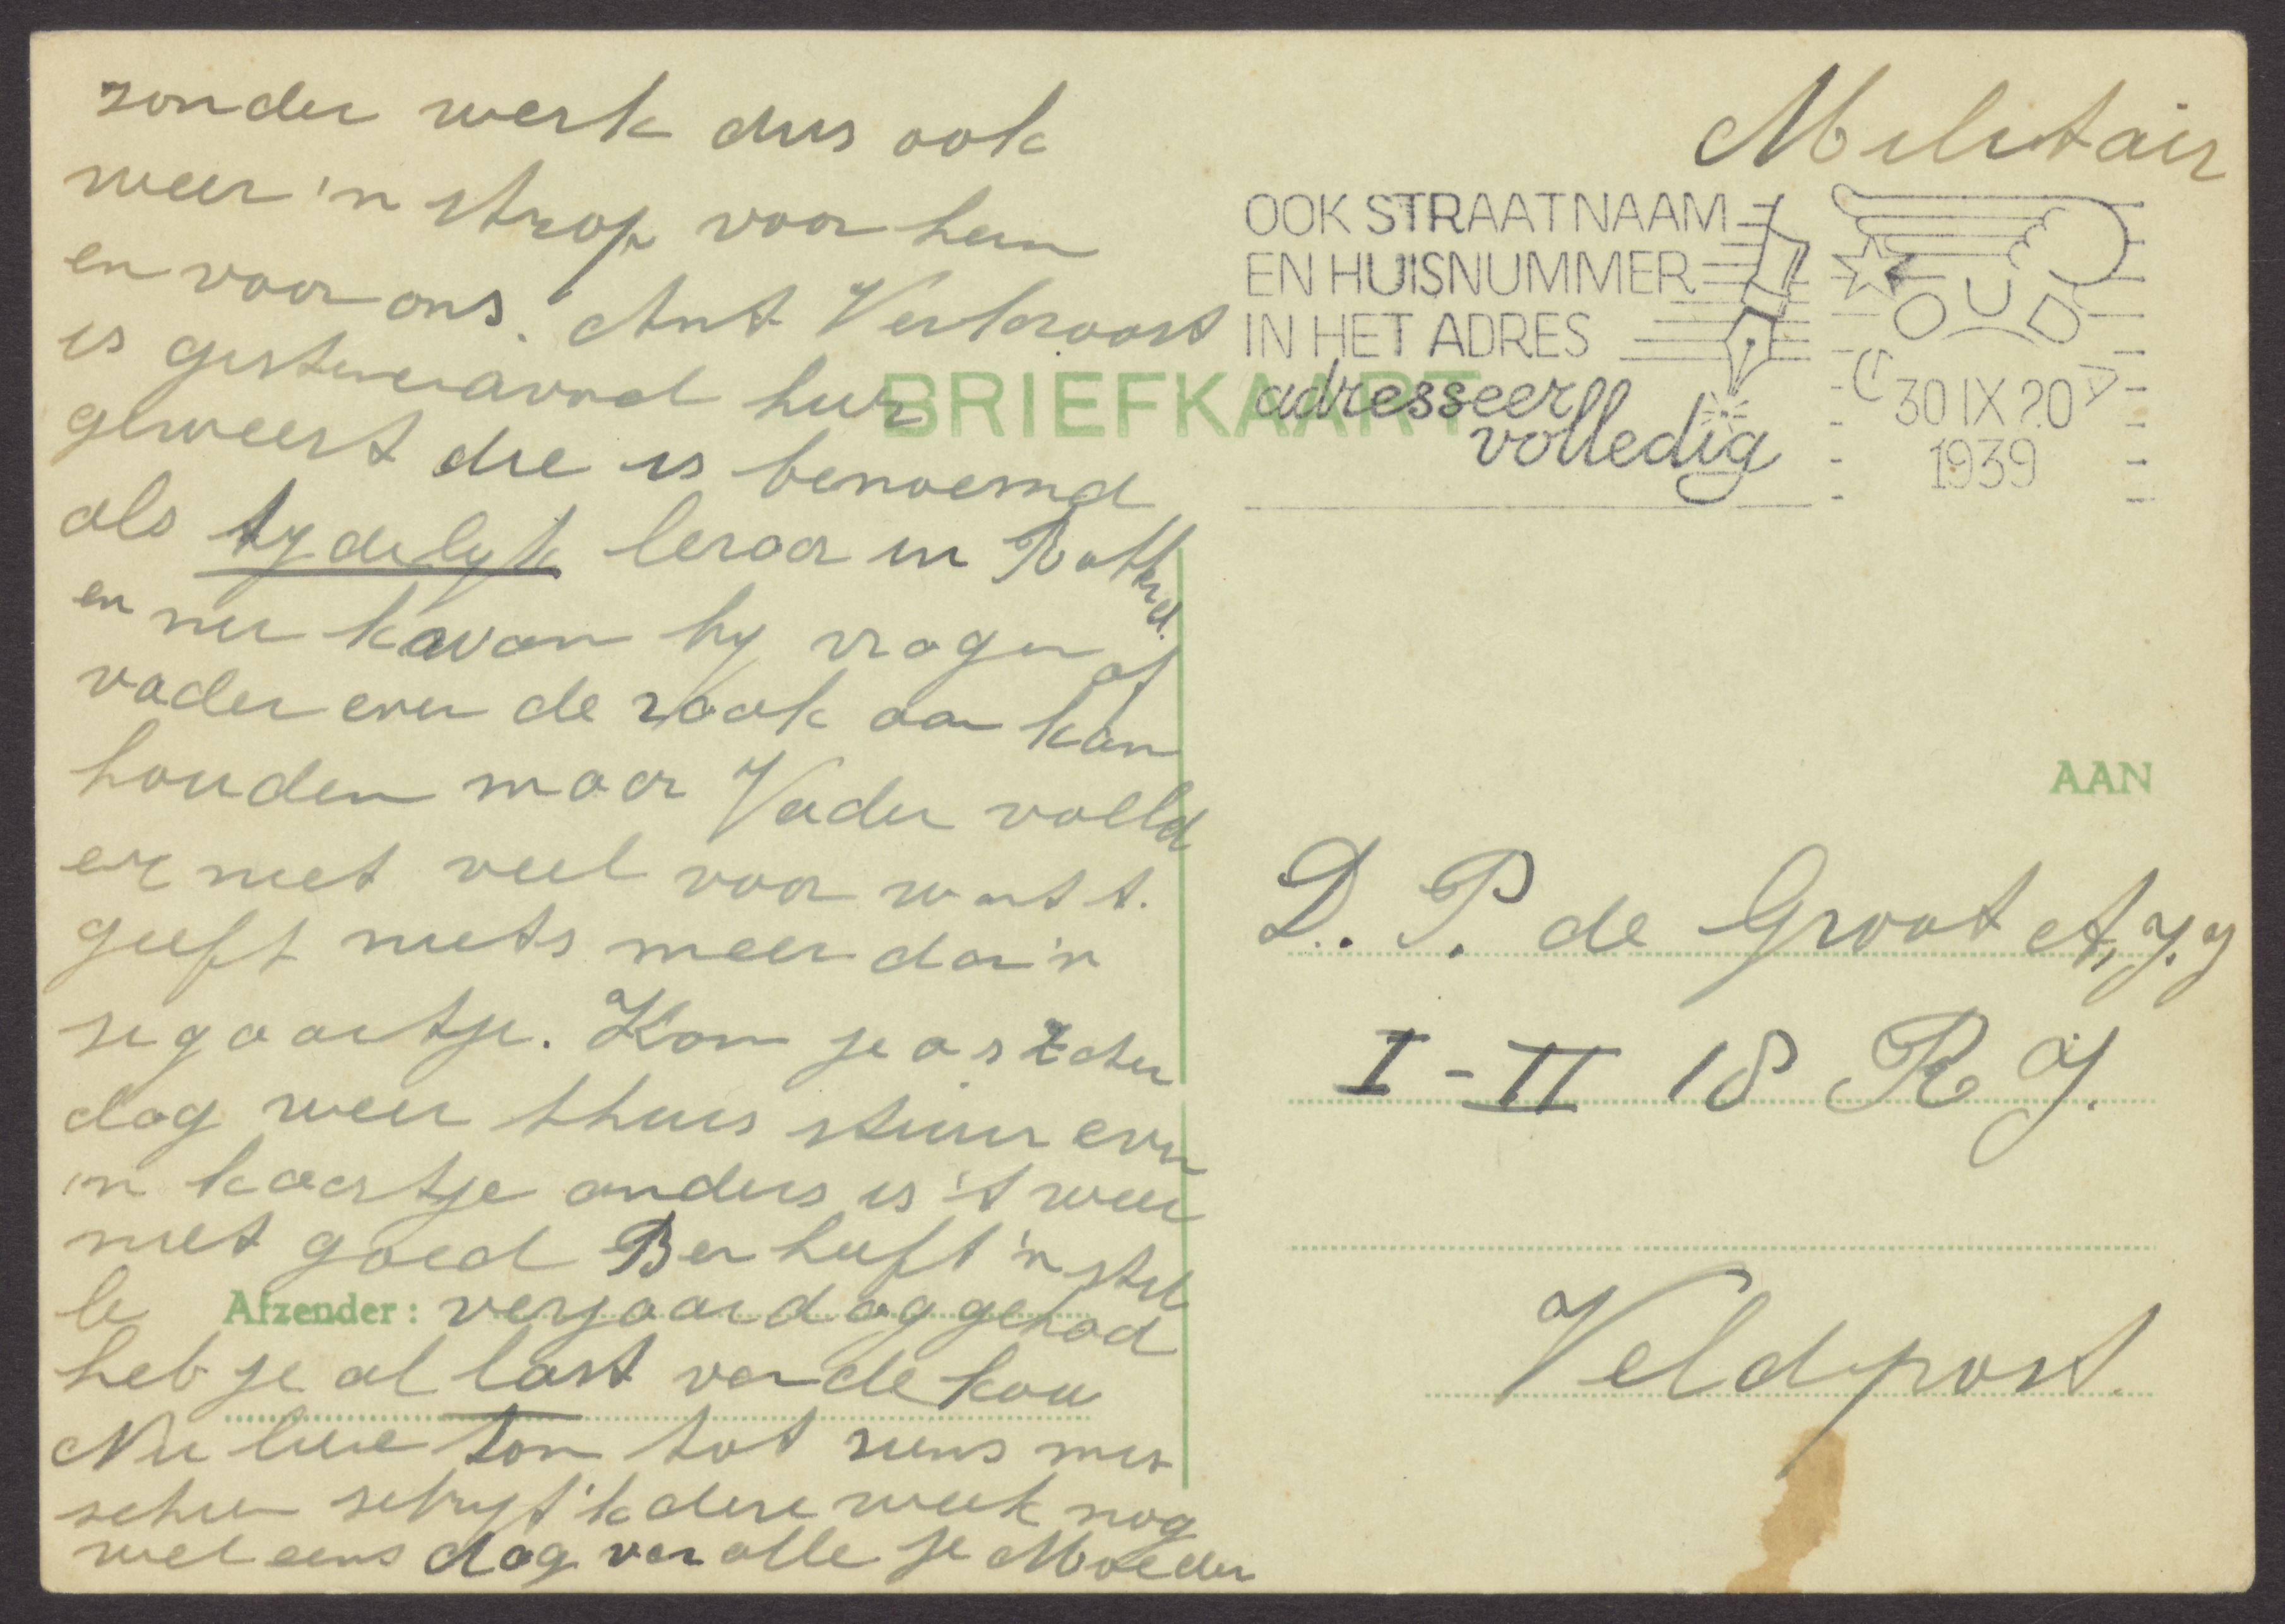 zonder werk dus ook
weer 'n strop voor hem
en voor ons. Ant Verkroost
is gisterenavond hier
geweest die is benoemd
als tydelyk leraar in Rottrd.
en nu kwam hy vragen of
vader even de zaak aan kan
houden maar Vader voeld
er niet veel voor want t.
geeft niets meer dan 'n
sigaartje. Kom je as Zater
dag weer thuis stuur even
'n kaartje anders is 't weer
niet goed Ber heeft 'n stil
le verjaardag gehad
Afzender:
heb je al last van de kou
Nu lieve Ton tot ziens mis
schien schryf 'k deze week nog
wel eens dag van alle je Moeder
BRIEFKAART
Militair
OOK STRAATNAAM
EN HUISNUMMER
IN HET ADRES
adresseer
volledig
GOUDA
30 IX 20
1939
AAN
D. P. de Groot A, J. J
I - II 18 R J.
Veldpost.